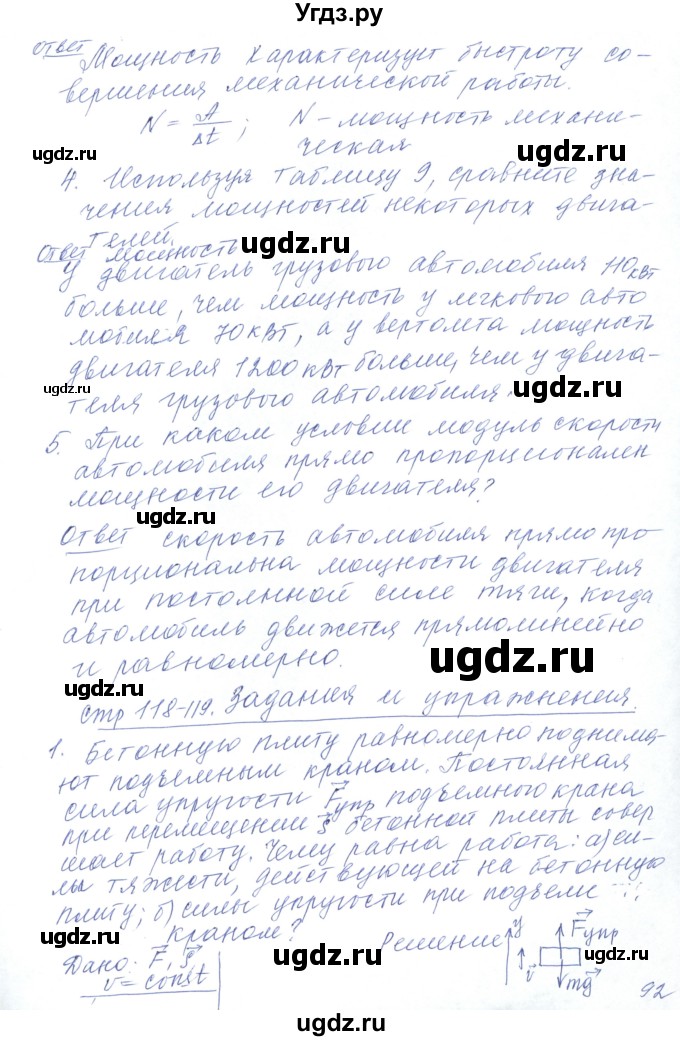 Угдз.ру
ответ Мощность характеризует быстроту со-
вершения механической работы.
N = A/Δt ; N - мощность механи-
ческая
угдз.ru
угдз.ru
4. Используя таблицу 9, сравните зна-
чения мощностей некоторых двига-
телей.
угдз.ru
Ответ мощность
У двигатель грузового автомобиля 110кВт
больше, чем мощность у легкового авто
мобиля 70кВт, а у вертолета мощность
двигателя 1200кВт больше, чем у двига-
теля грузового автомобиля.
угдз.ru
угдз.ru
5. При каком условии модуль скорости
автомобиля прямо пропорционален
мощности его двигателя?
угдз.ru
Ответ скорость автомобиля прямо про
порциональна мощности двигателя
при постоянной силе тяги, когда
автомобиль движется прямолинейно
и равномерно.
угдз.ru
стр 118-119. Задания и упражнения.
1. Бетонную плиту равномерно поднима-
ют подъемным краном. Постоянная
сила упругости F⃗упр подъемного крана
при перемещении s⃗ бетонной плиты совер
шает работу. Чему равна работа: а) си-
лы тяжести, действующей на бетонную
плиту; б) силы упругости при подъеме
краном?
угдз.ru
угдз.ru
Дано: F⃗, s⃗
v = const
Решение
y
v⃗
F⃗упр
mg⃗
92
угдз.ru